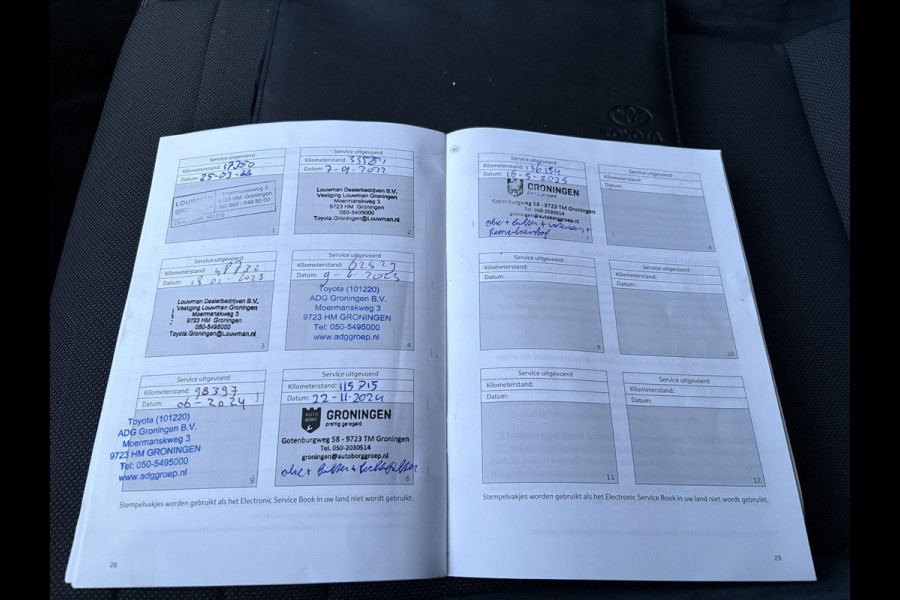 TOYOTA
Service uitgevoerd
Kilometerstand: 17250
Datum: 25-03-22
Moermanskweg 3
9723 HM Groningen
1
Service uitgevoerd
Kilometerstand: 33551
Datum: 7-09-2022
Louwman Dealerbedrijven B.V.
Vestiging Louwman Groningen
Moermanskweg 3
9723 HM Groningen
050-5495000
Toyota.Groningen@Louwman.nl
2
Service uitgevoerd
Kilometerstand:
Datum:
Louwman Dealerbedrijven B.V.
Vestiging Louwman Groningen
Moermanskweg 3
9723 HM Groningen
050-5495000
Toyota.Groningen@Louwman.nl
3
Service uitgevoerd
Kilometerstand:
Datum: 9-6-2023
Toyota (101220)
ADG Groningen B.V.
Moermanskweg 3
9723 HM GRONINGEN
Tel: 050-5495000
www.adggroep.nl
4
Service uitgevoerd
Kilometerstand: 98397
Datum: 06-2024
Toyota (101220)
ADG Groningen B.V.
Moermanskweg 3
9723 HM GRONINGEN
Tel: 050-5495000
www.adggroep.nl
5
Service uitgevoerd
Kilometerstand: 115715
Datum: 22-11-2024
AUTO
BORG
GRONINGEN
prettig geregeld
Gotenburgweg 58 - 9723 TM Groningen
Tel. 050-2030514
groningen@autoborggroep.nl
olie + filter +
6
Stempelvakjes worden gebruikt als het Electronic Service Book in uw land niet wordt gebruikt.
28
Service uitgevoerd
Kilometerstand: 136154
Datum: 16-5-2025
GRONINGEN
Gotenburgweg 58 - 9723 TM Groningen
Tel. 050-2030514
groningen@autoborggroep.nl
olie + filter + interieur +
Remvloeistof
7
Service uitgevoerd
Kilometerstand:
Datum:
8
Service uitgevoerd
Kilometerstand:
Datum:
9
Service uitgevoerd
Kilometerstand:
Datum:
10
Service uitgevoerd
Kilometerstand:
Datum:
11
Service uitgevoerd
Kilometerstand:
Datum:
12
Stempelvakjes worden gebruikt als het Electronic Service Book in uw land niet wordt gebruikt.
29